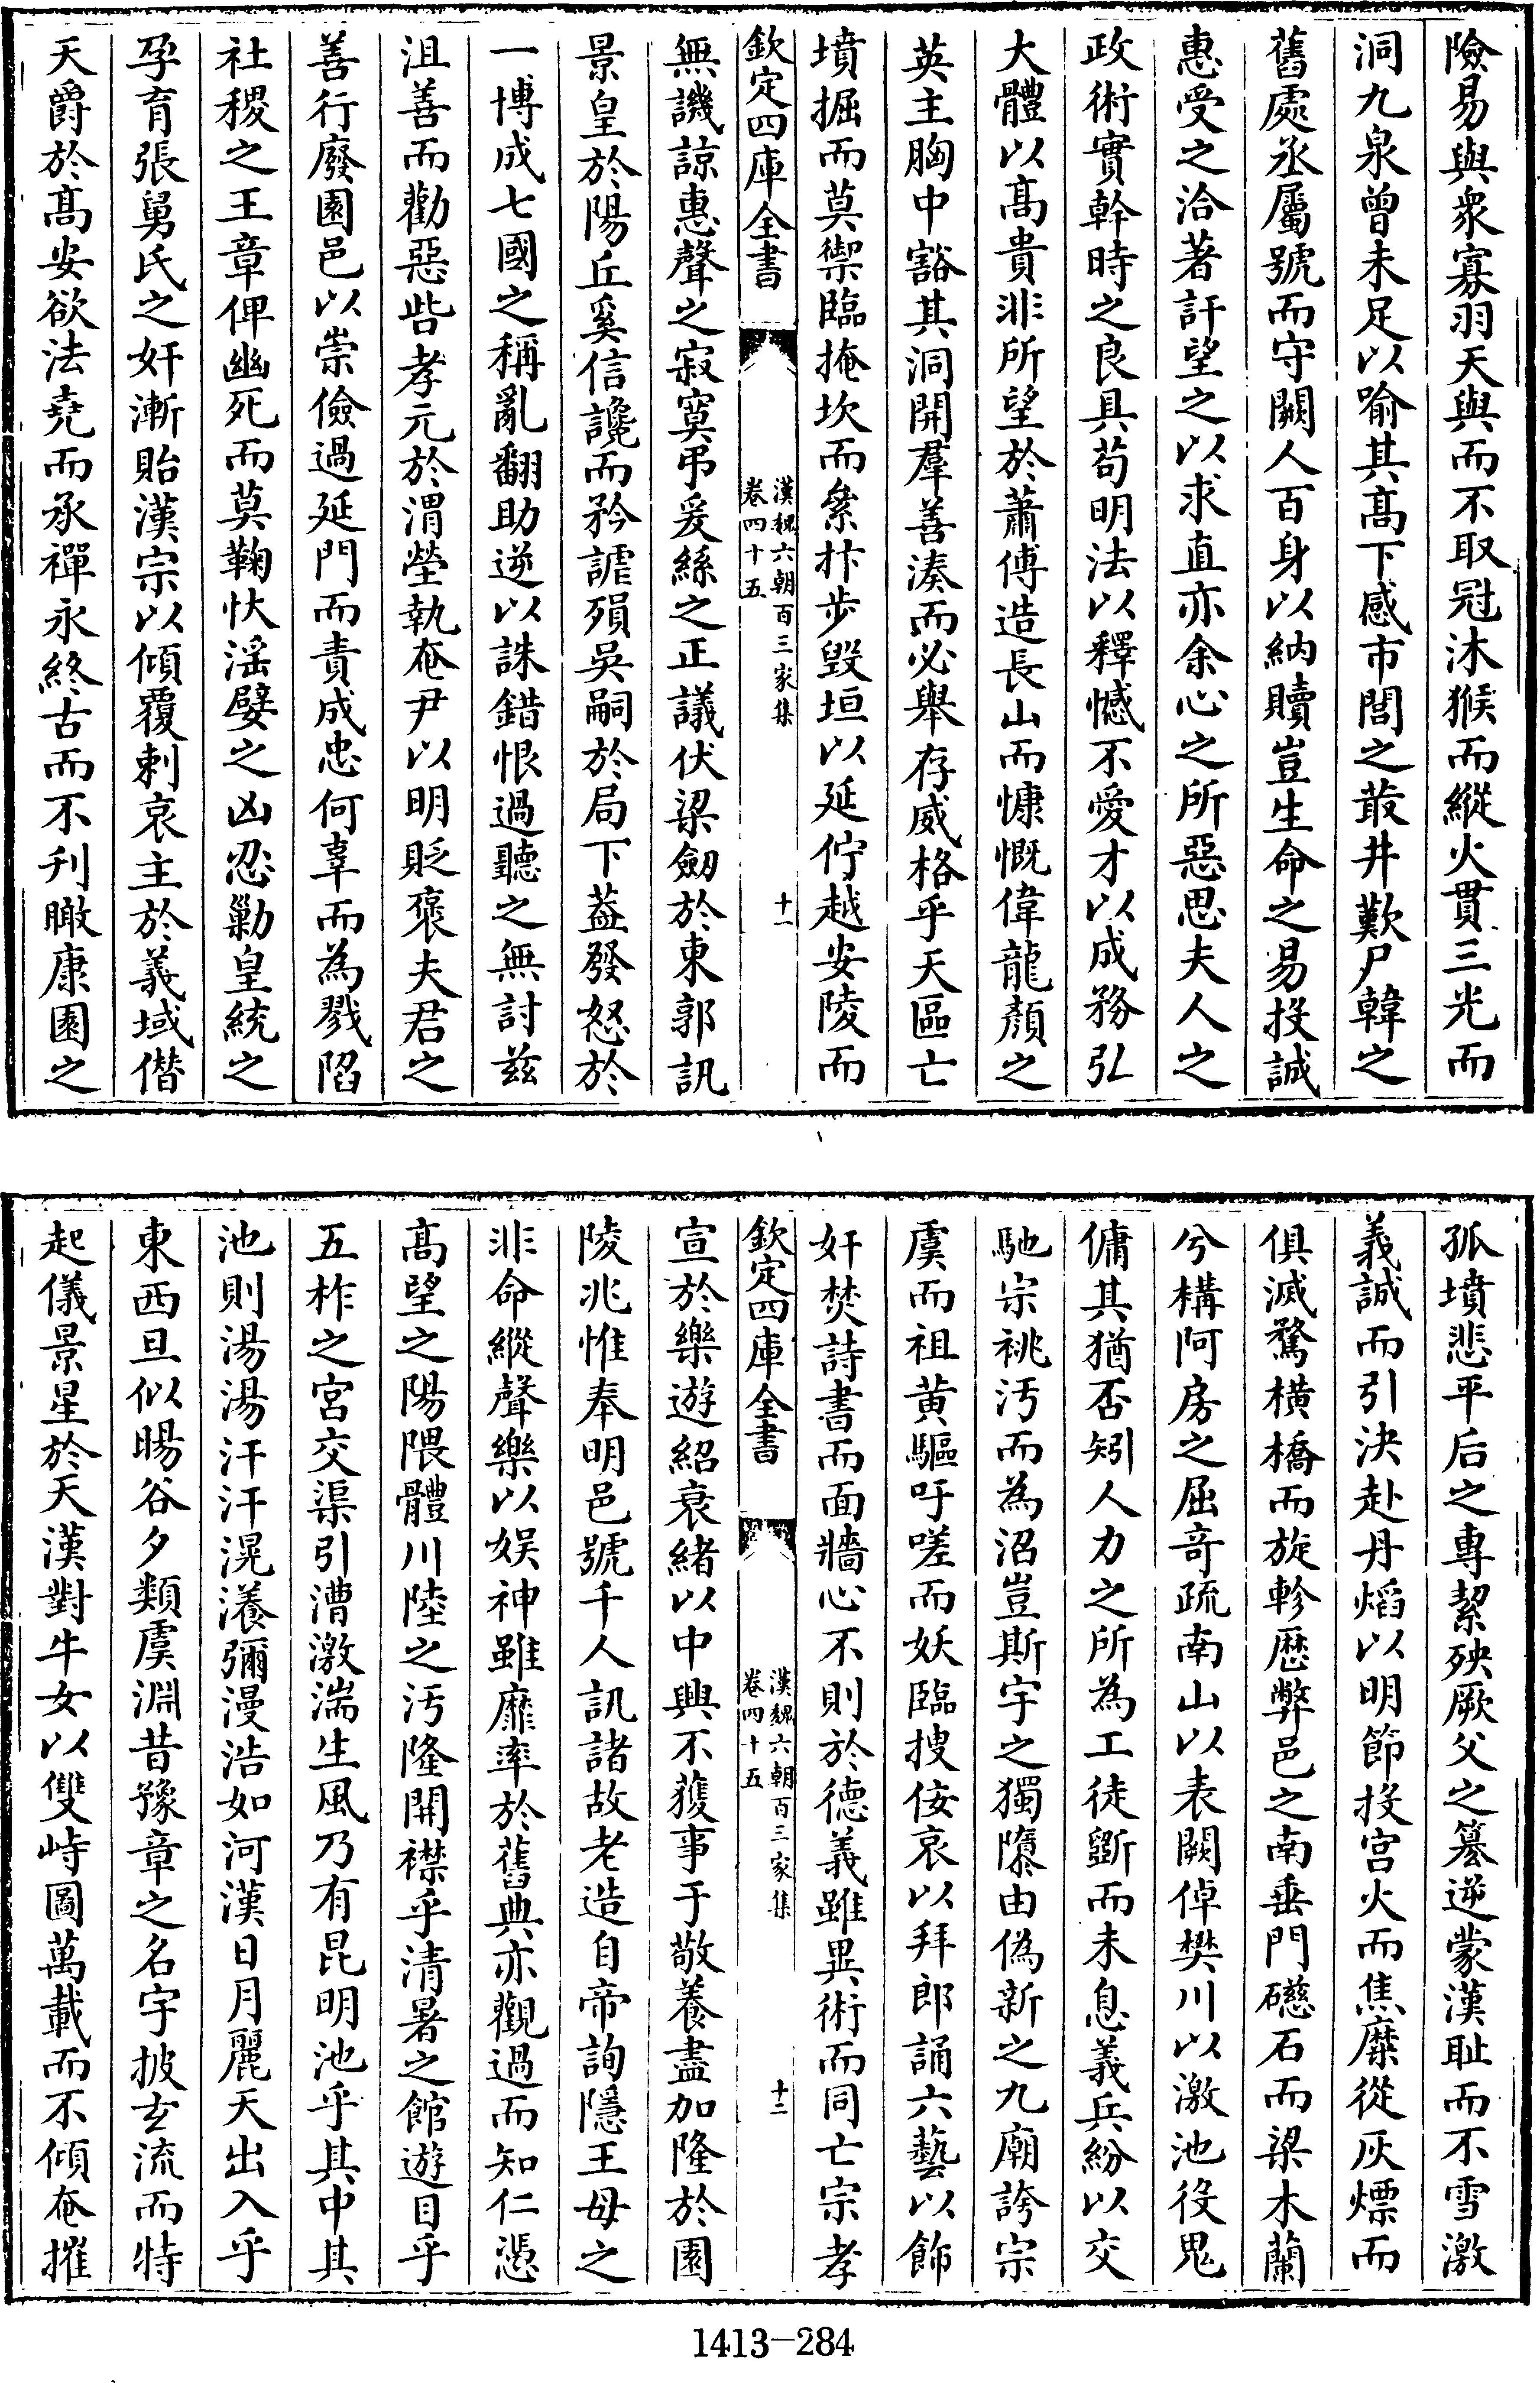 險易與衆寡羽天與而不取冠沐猴而縱火貫三光而
洞九泉曾未足以喻其髙下感市閭之菆井歎尸韓之
舊處丞屬號而守闕人百身以納贖豈生命之易投誠
惠受之洽著訐望之以求直亦余心之所惡思夫人之
政術實幹時之良具苟明法以釋憾不愛才以成務弘
大體以髙貴非所望於蕭傅造長山而慷慨偉龍顏之
英主胸中豁其洞開羣善湊而必舉存威格乎天區亡
墳掘而莫禦臨掩坎而絫抃步毀垣以延佇越安陵而
欽定四庫全書
漢魏六朝百三家集
卷四十五
十一
無譏諒惠聲之寂寞弔爰絲之正議伏梁劒於東郭訊
景皇於陽丘奚信讒而矜謔殞吳嗣於局下葢發怒於
一博成七國之稱亂翻助逆以誅錯恨過聽之無討兹
沮善而勸惡呰孝元於渭塋執奄尹以明貶褒夫君之
善行廢園邑以崇儉過延門而責成忠何辜而為戮陷
社稷之王章俾幽死而莫鞠忕淫嬖之凶忍勦皇統之
孕育張舅氏之奸漸貽漢宗以傾覆刺哀主於義域僭
天爵於髙安欲法堯而承禪永終古而不刋瞰康園之
孤墳悲平后之專絜殃厥父之簒逆蒙漢耻而不雪激
義誠而引決赴丹熖以明節投宫火而焦糜從灰熛而
俱滅騖橫橋而旋軫歴弊邑之南垂門礠石而梁木蘭
兮構阿房之屈竒疏南山以表闕倬樊川以激池役鬼
傭其猶否矧人力之所為工徒斵而未息義兵紛以交
馳宗祧汚而為沼豈斯宇之獨隳由偽新之九廟誇宗
虞而祖黄驅吁嗟而妖臨搜佞哀以拜郎誦六藝以飾
奸焚詩書而面牆心不則於德義雖異術而同亡宗孝
欽定四庫全書
漢魏六朝百三家集
卷四十五
十二
宣於樂遊紹衰緒以中興不獲事于敬養盡加隆於園
陵兆惟奉明邑號千人訊諸故老造自帝詢隱王母之
非命縱聲樂以娱神雖靡率於舊典亦觀過而知仁慿
髙望之陽隈體川陸之汚隆開襟乎清暑之館遊目乎
五柞之宫交渠引漕激湍生風乃有昆明池乎其中其
池則湯湯汗汗滉瀁彌漫浩如河漢日月麗天出入乎
東西旦似暘谷夕類虞淵昔豫章之名宇披𤣥流而特
起儀景星於天漢對牛女以雙峙圖萬載而不傾奄摧
1413-284